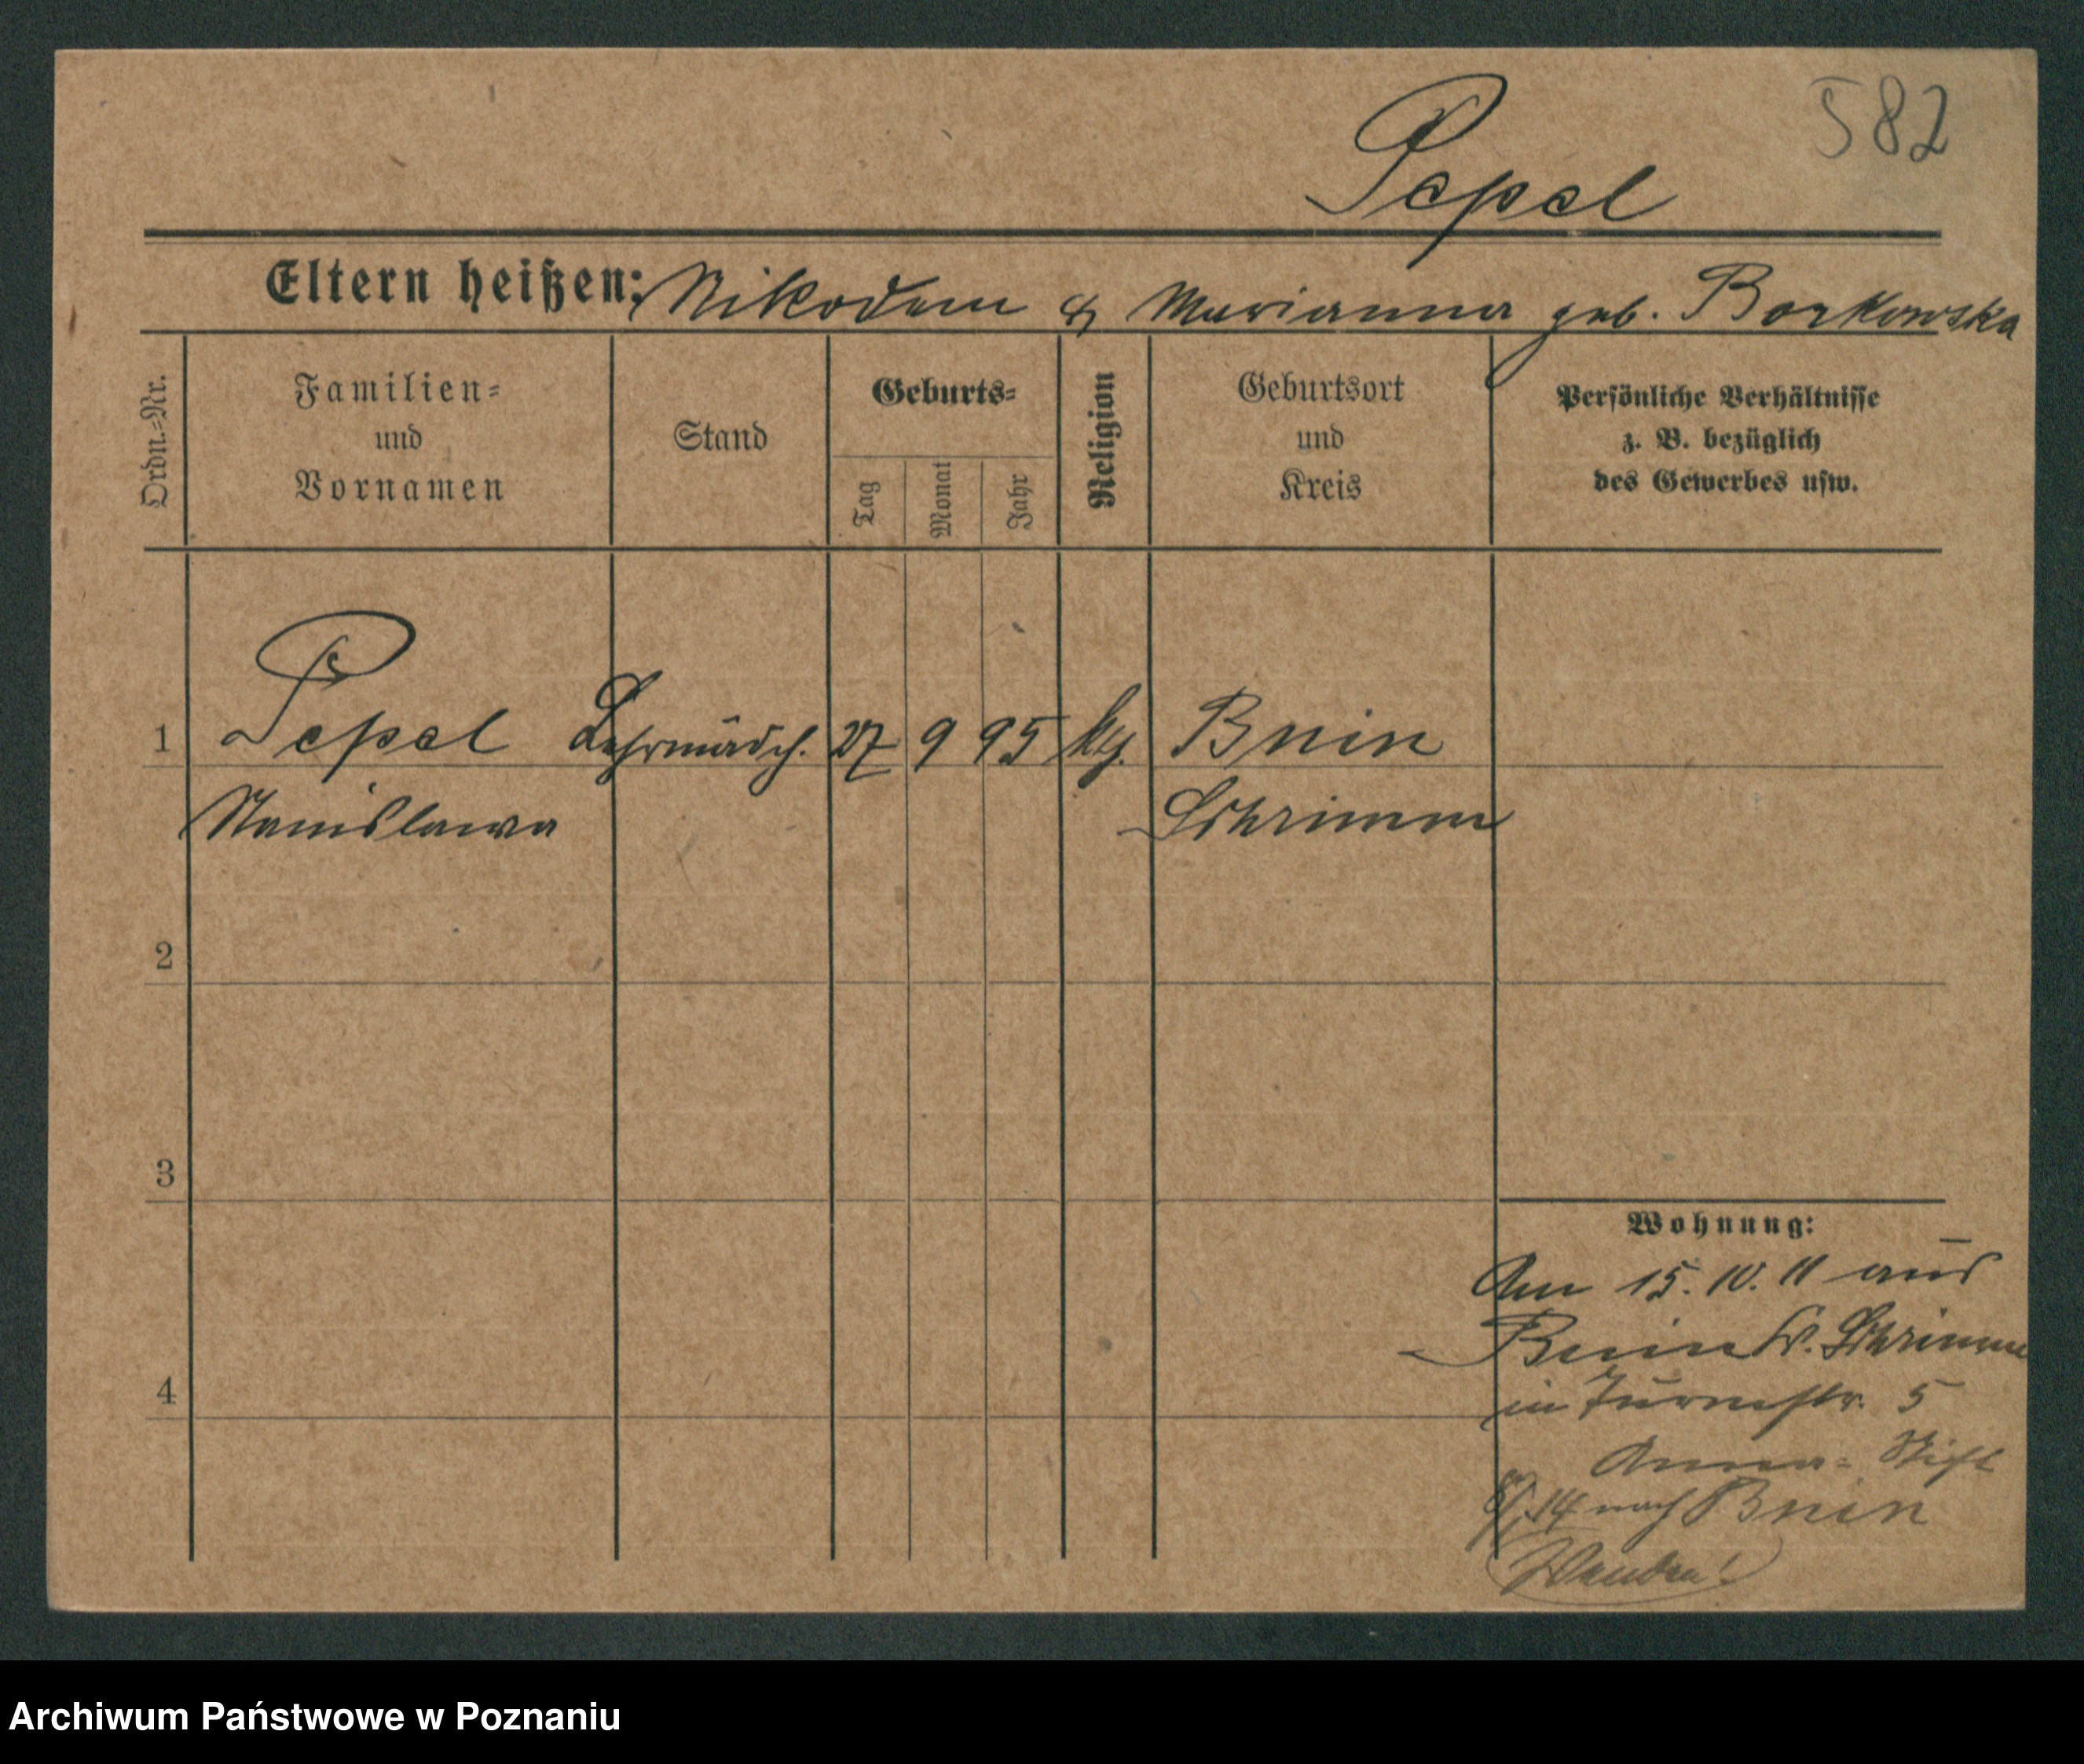 582
Pepel
Eltern heißen: Nikodem & Marianna geb. Borkowska
Ordn.-Nr.
Familien-
und
Vornamen
Stand
Geburts-
Tag
Monat
Jahr
Religion
Geburtsort
und
Kreis
Persönliche Verhältnisse
z. B. bezüglich
des Gewerbes usw.
1 Pepel Lehrmädch. 27 9 95 kg. Bnin
Stanislawa Schrimm
2
3
4
Wohnung:
Am 15.10.11 aus
Bnin Kr. Schrimm
in Turmstr. 5
Anna-Stift
14 nach Bnin
Wenden!
Archiwum Państwowe w Poznaniu